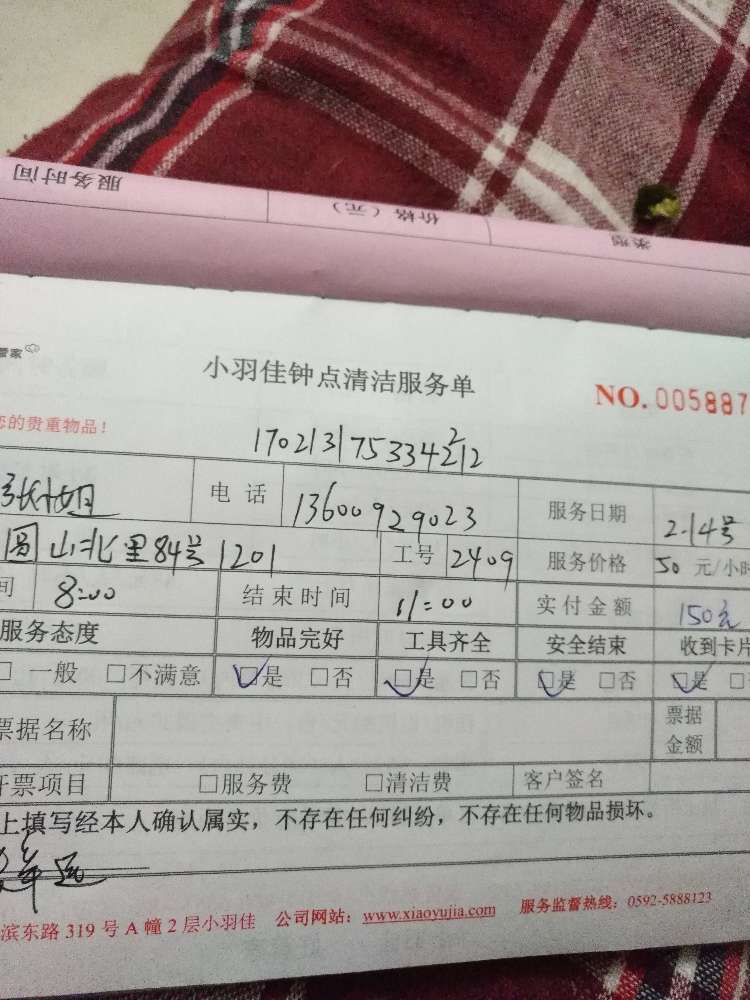 服务时间
价格（元）
类型
管家
小羽佳钟点清洁服务单
NO. 005887
的贵重物品！
电话 13600929023 服务日期 2.14号
圆山北里84号1201 工号 2409 服务价格 50 元/小时
间 8:00 结束时间 11:00 实付金额 150元
服务态度 物品完好 工具齐全 安全结束 收到卡片
□一般 □不满意 □是 □否 □是 □否 □是 □否 □是
票据名称 票据金额
开票项目 □服务费 □清洁费 客户签名
上填写经本人确认属实，不存在任何纠纷，不存在任何物品损坏。
滨东路 319 号 A 幢 2 层小羽佳 公司网站：www.xiaoyujia.com 服务监督热线：0592-5888123